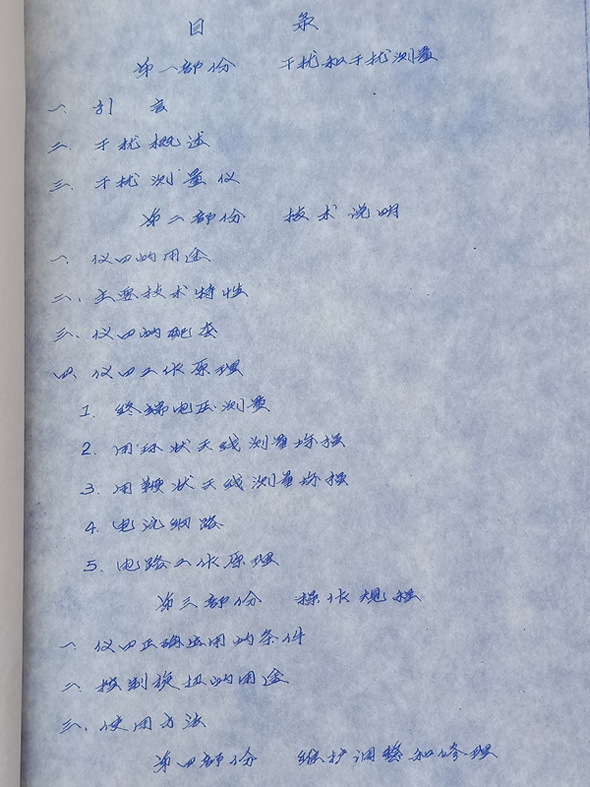 目 录
第一部份 干扰和干扰测量
一、引 言
二、干扰概述
三、干扰测量仪
第二部份 技术说明
一、仪四的用途
二、主要技术特性
三、仪四的配套
四、仪四工作原理
1. 终端电压测量
2. 用环状天线测量场强
3. 用鞭状天线测量场强
4. 电流网路
5. 电路工作原理
第三部份 操作规程
一、仪四正确运用的条件
二、控制旋扭的用途
三、使用方法
第四部份 维护调整和修理